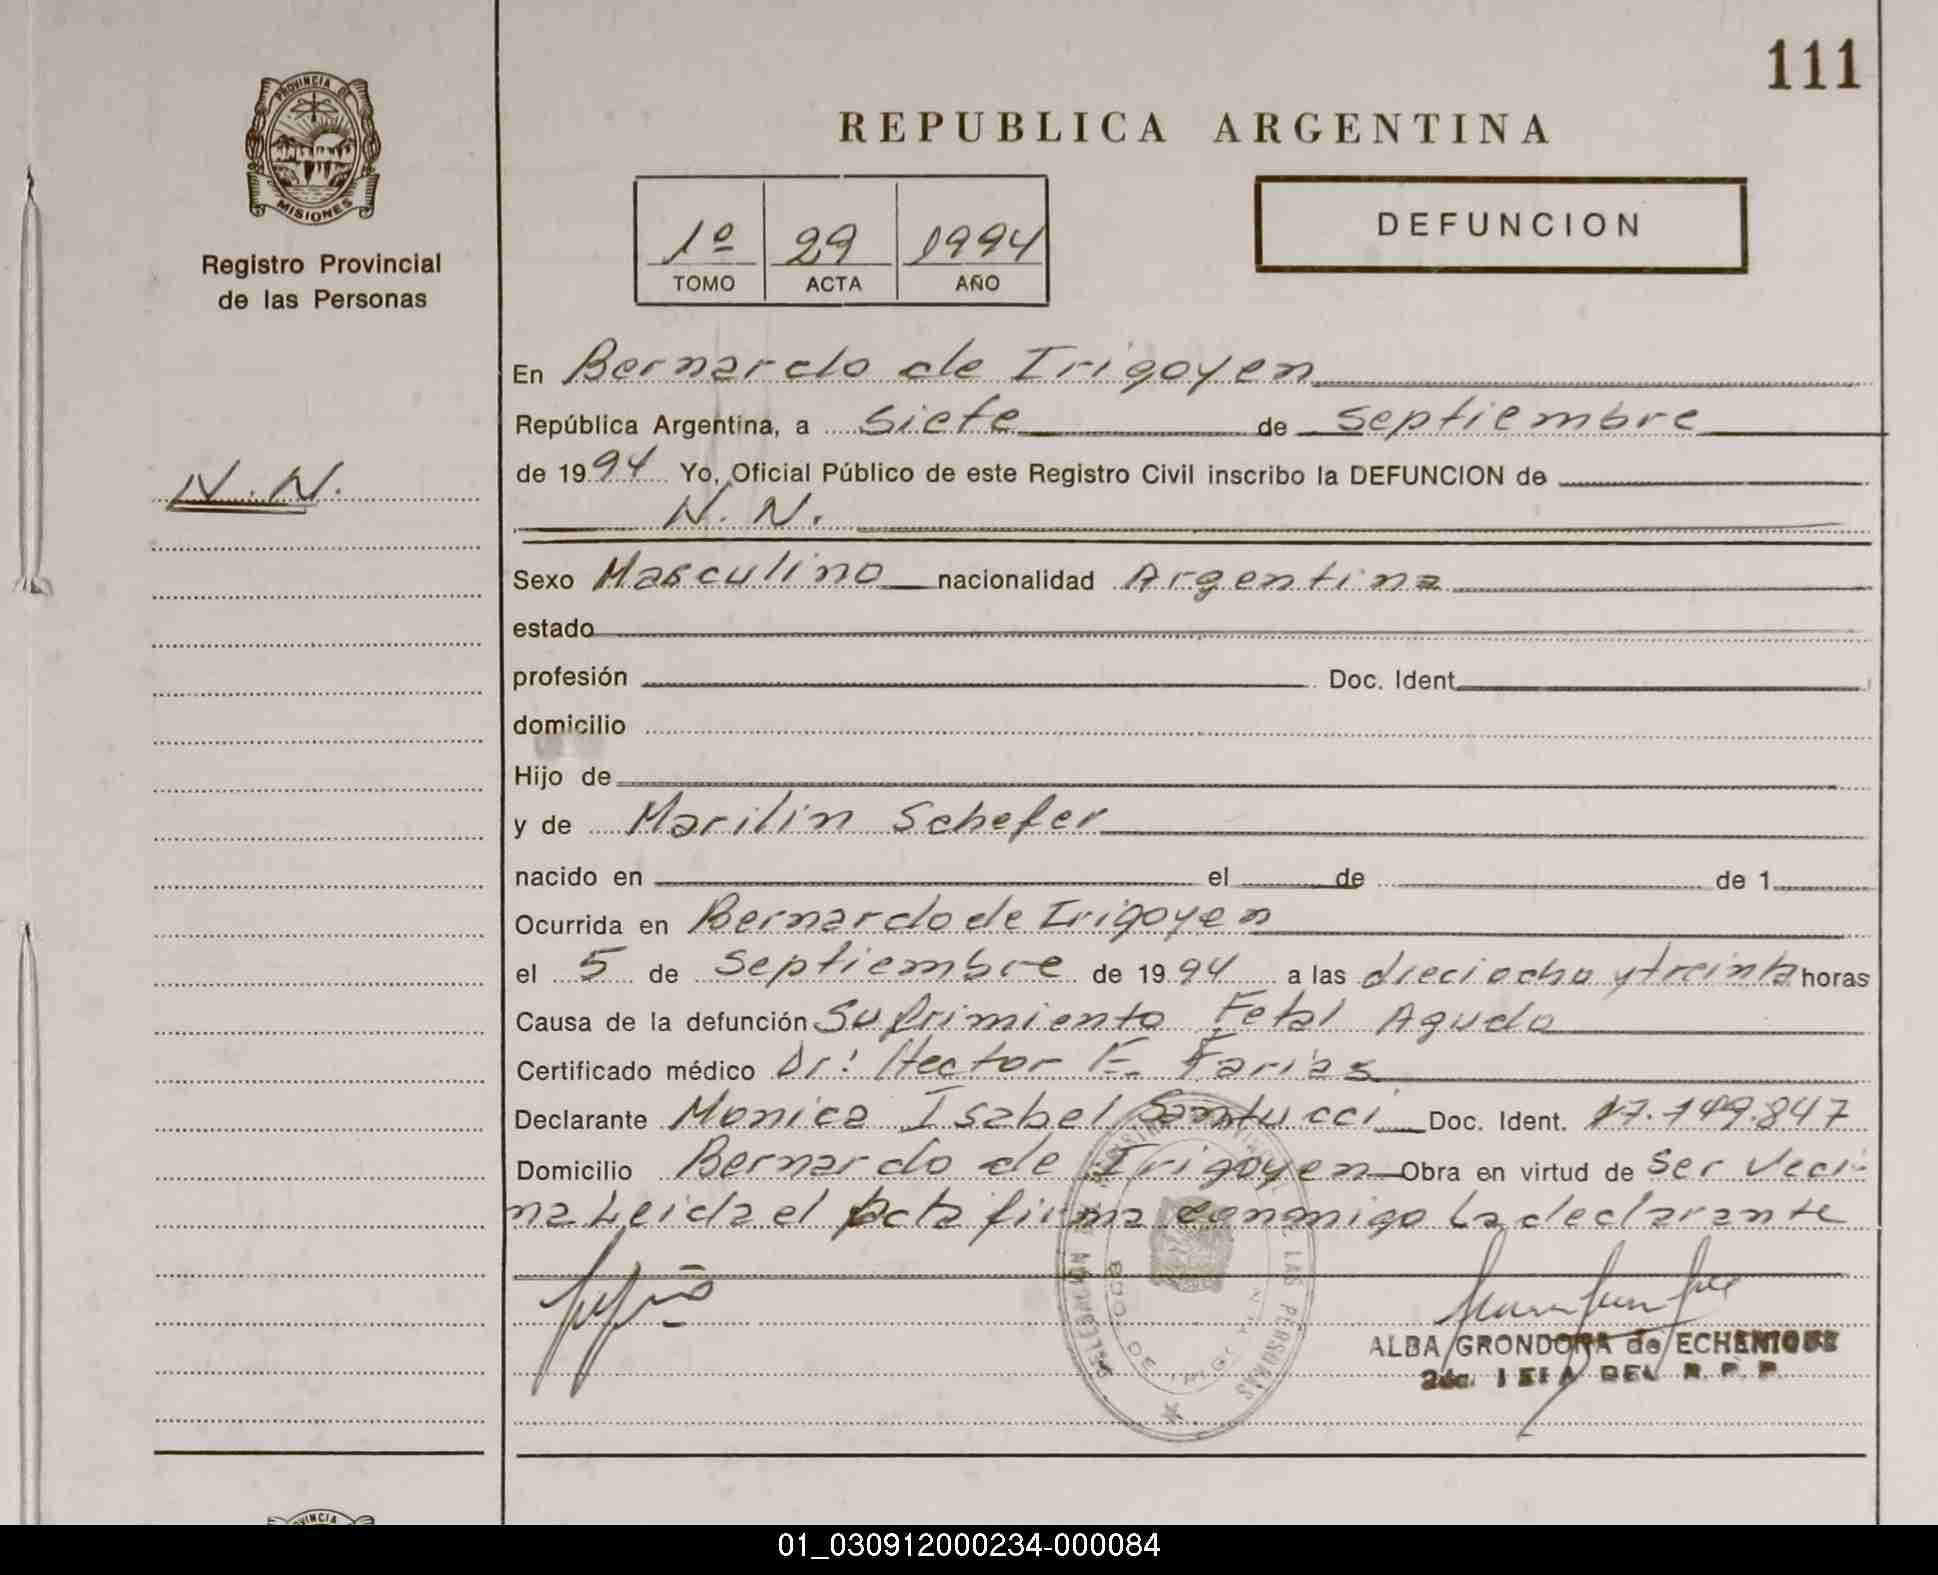 111
PROVINCIA DE
MISIONES
REPUBLICA ARGENTINA
1º 29 1994
TOMO ACTA AÑO
DEFUNCION
Registro Provincial
de las Personas
En Bernardo de Irigoyen
República Argentina, a siete de septiembre
N.N.
de 1994 Yo, Oficial Público de este Registro Civil inscribo la DEFUNCION de
N. N.
Sexo Masculino nacionalidad Argentina
estado
profesión Doc. Ident.
domicilio
Hijo de
y de Marilin Schefer
nacido en el de de 1
Ocurrida en Bernardo de Irigoyen
el 5 de Septiembre de 1994 a las dieciocho y treinta horas
Causa de la defunción Sufrimiento Fetal Agudo
Certificado médico Dr: Hector E. Farias
Declarante Monica Isabel Santucci Doc. Ident. 17.749.847
Domicilio Bernardo de Irigoyen Obra en virtud de ser veci-
na Leida el acta firma conmigo La declarante
LAS PERSONAS
ALBA GRONDONA de ECHENIQUE
DEL R. P. P.
VINCIA
01_030912000234-000084